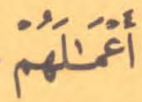 أَعْمَٰلَهُمْ